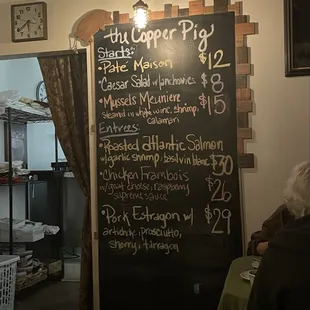 the Copper Pig
Starts:
• Pate Maison $12
• Caesar Salad w/ anchovies 8
• Mussels Meuniere $15
steamed in white wine, shrimp,
calamari
Entrees:
• Roasted atlantic Salmon
w/ garlic shrimp, basil vin blanc $30
• Chicken Frambois
w/ goat cheese, raspberry $26
"supreme sauce"
• Pork Estragon w/ $29
artichoke, prosciutto,
sherry, tarragon